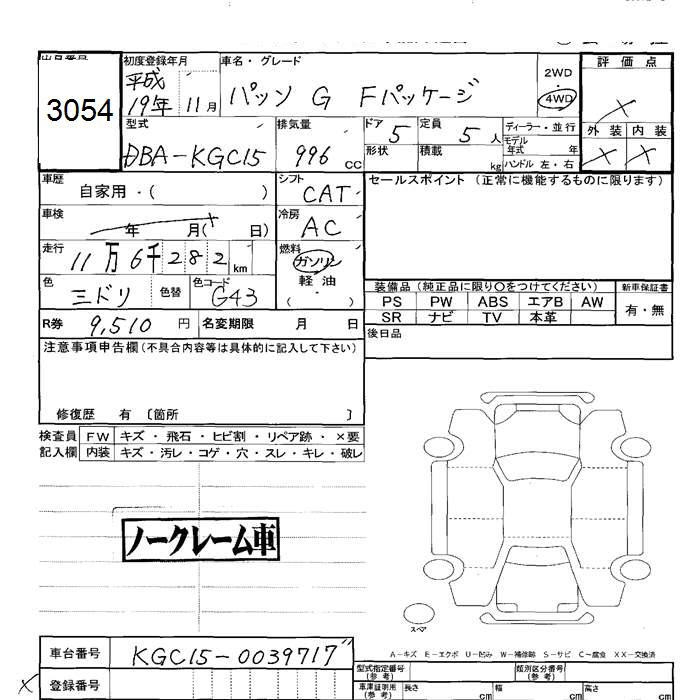 初度登録年月 車名・グレード 2WD 評価点
3054 平成 19年 11月 パッソ G Fパッケージ 4WD ×
型式 排気量 ドア 定員 ディーラー・並行 外装 内装
DBA-KGC15 996 CC 5 5人 モデル年式 年 × ×
形状 積載 kg ハンドル 左・右
車歴 シフト セールスポイント (正常に機能するものに限ります)
自家用・( ) CAT
車検 年 月( 日) 冷房 AC
走行 11万6千282 km 燃料 ガソリン
軽油
( )
色 ミドリ 色替 色コード G43
装備品 (純正品に限り○をつけてください) 新車保証書
PS PW ABS エアB AW 有・無
SR ナビ TV 本革
R券 9,510 円 名変期限 月 日
後日品
注意事項申告欄(不具合内容等は具体的に記入して下さい)
修復歴 有 〔箇所 〕
検査員 FW キズ・飛石・ヒビ割・リペア跡・×要
記入欄 内装 キズ・汚レ・コゲ・穴・スレ・キレ・破レ
ノークレーム車
スペア
A-キズ E-エクボ U-凹み W-補修跡 S-サビ C-腐食 XX-交換済
車台番号 KGC15-0039717
× 登録番号
型式指定番号(参考) 類別区分番号(参考)
車庫証明用(参考) 長さ cm 幅 cm 高さ cm